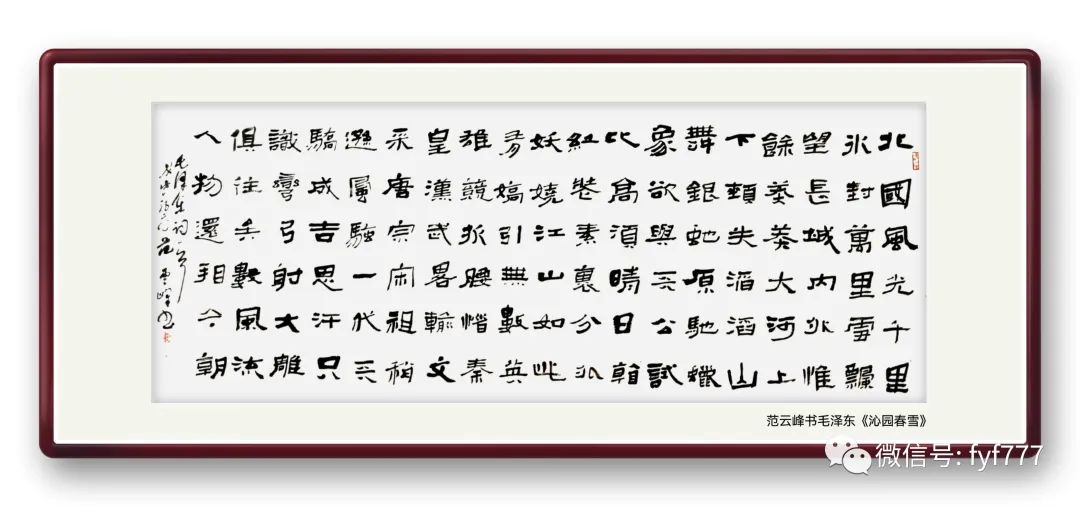 北國風光千里
冰封萬里雪飄
望長城內外惟
餘莽莽大河上
下頓失滔滔山
舞銀蛇原馳蠟
象欲與天公試
比高須晴日看
紅裝素裹分外
妖嬈江山如此
多嬌引無數英
雄競折腰惜秦
皇漢武畧輸文
采唐宗宋祖稍
遜風騷一代天
驕成吉思汗只
識彎弓射大雕
俱往矣數風流
人物還看今朝
毛澤東詞一首
范雲峰書
范云峰书毛泽东《沁园春雪》
微信号: fyf777